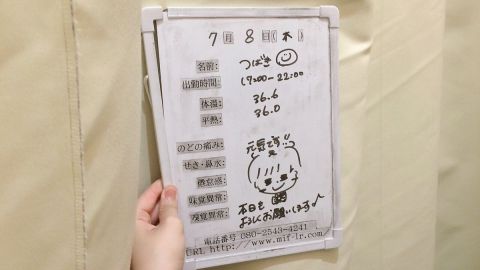 7月 8日(木)
名前: つばき
出勤時間: 17:00-22:00
体温: 36.6
平熱: 36.0
のどの痛み:
元気です!!
せき・鼻水:
倦怠感:
味覚異常:
嗅覚異常:
本日も
よろしくお願いします♪
電話番号 080-2543-4241
URL http://www.mif-lr.com/